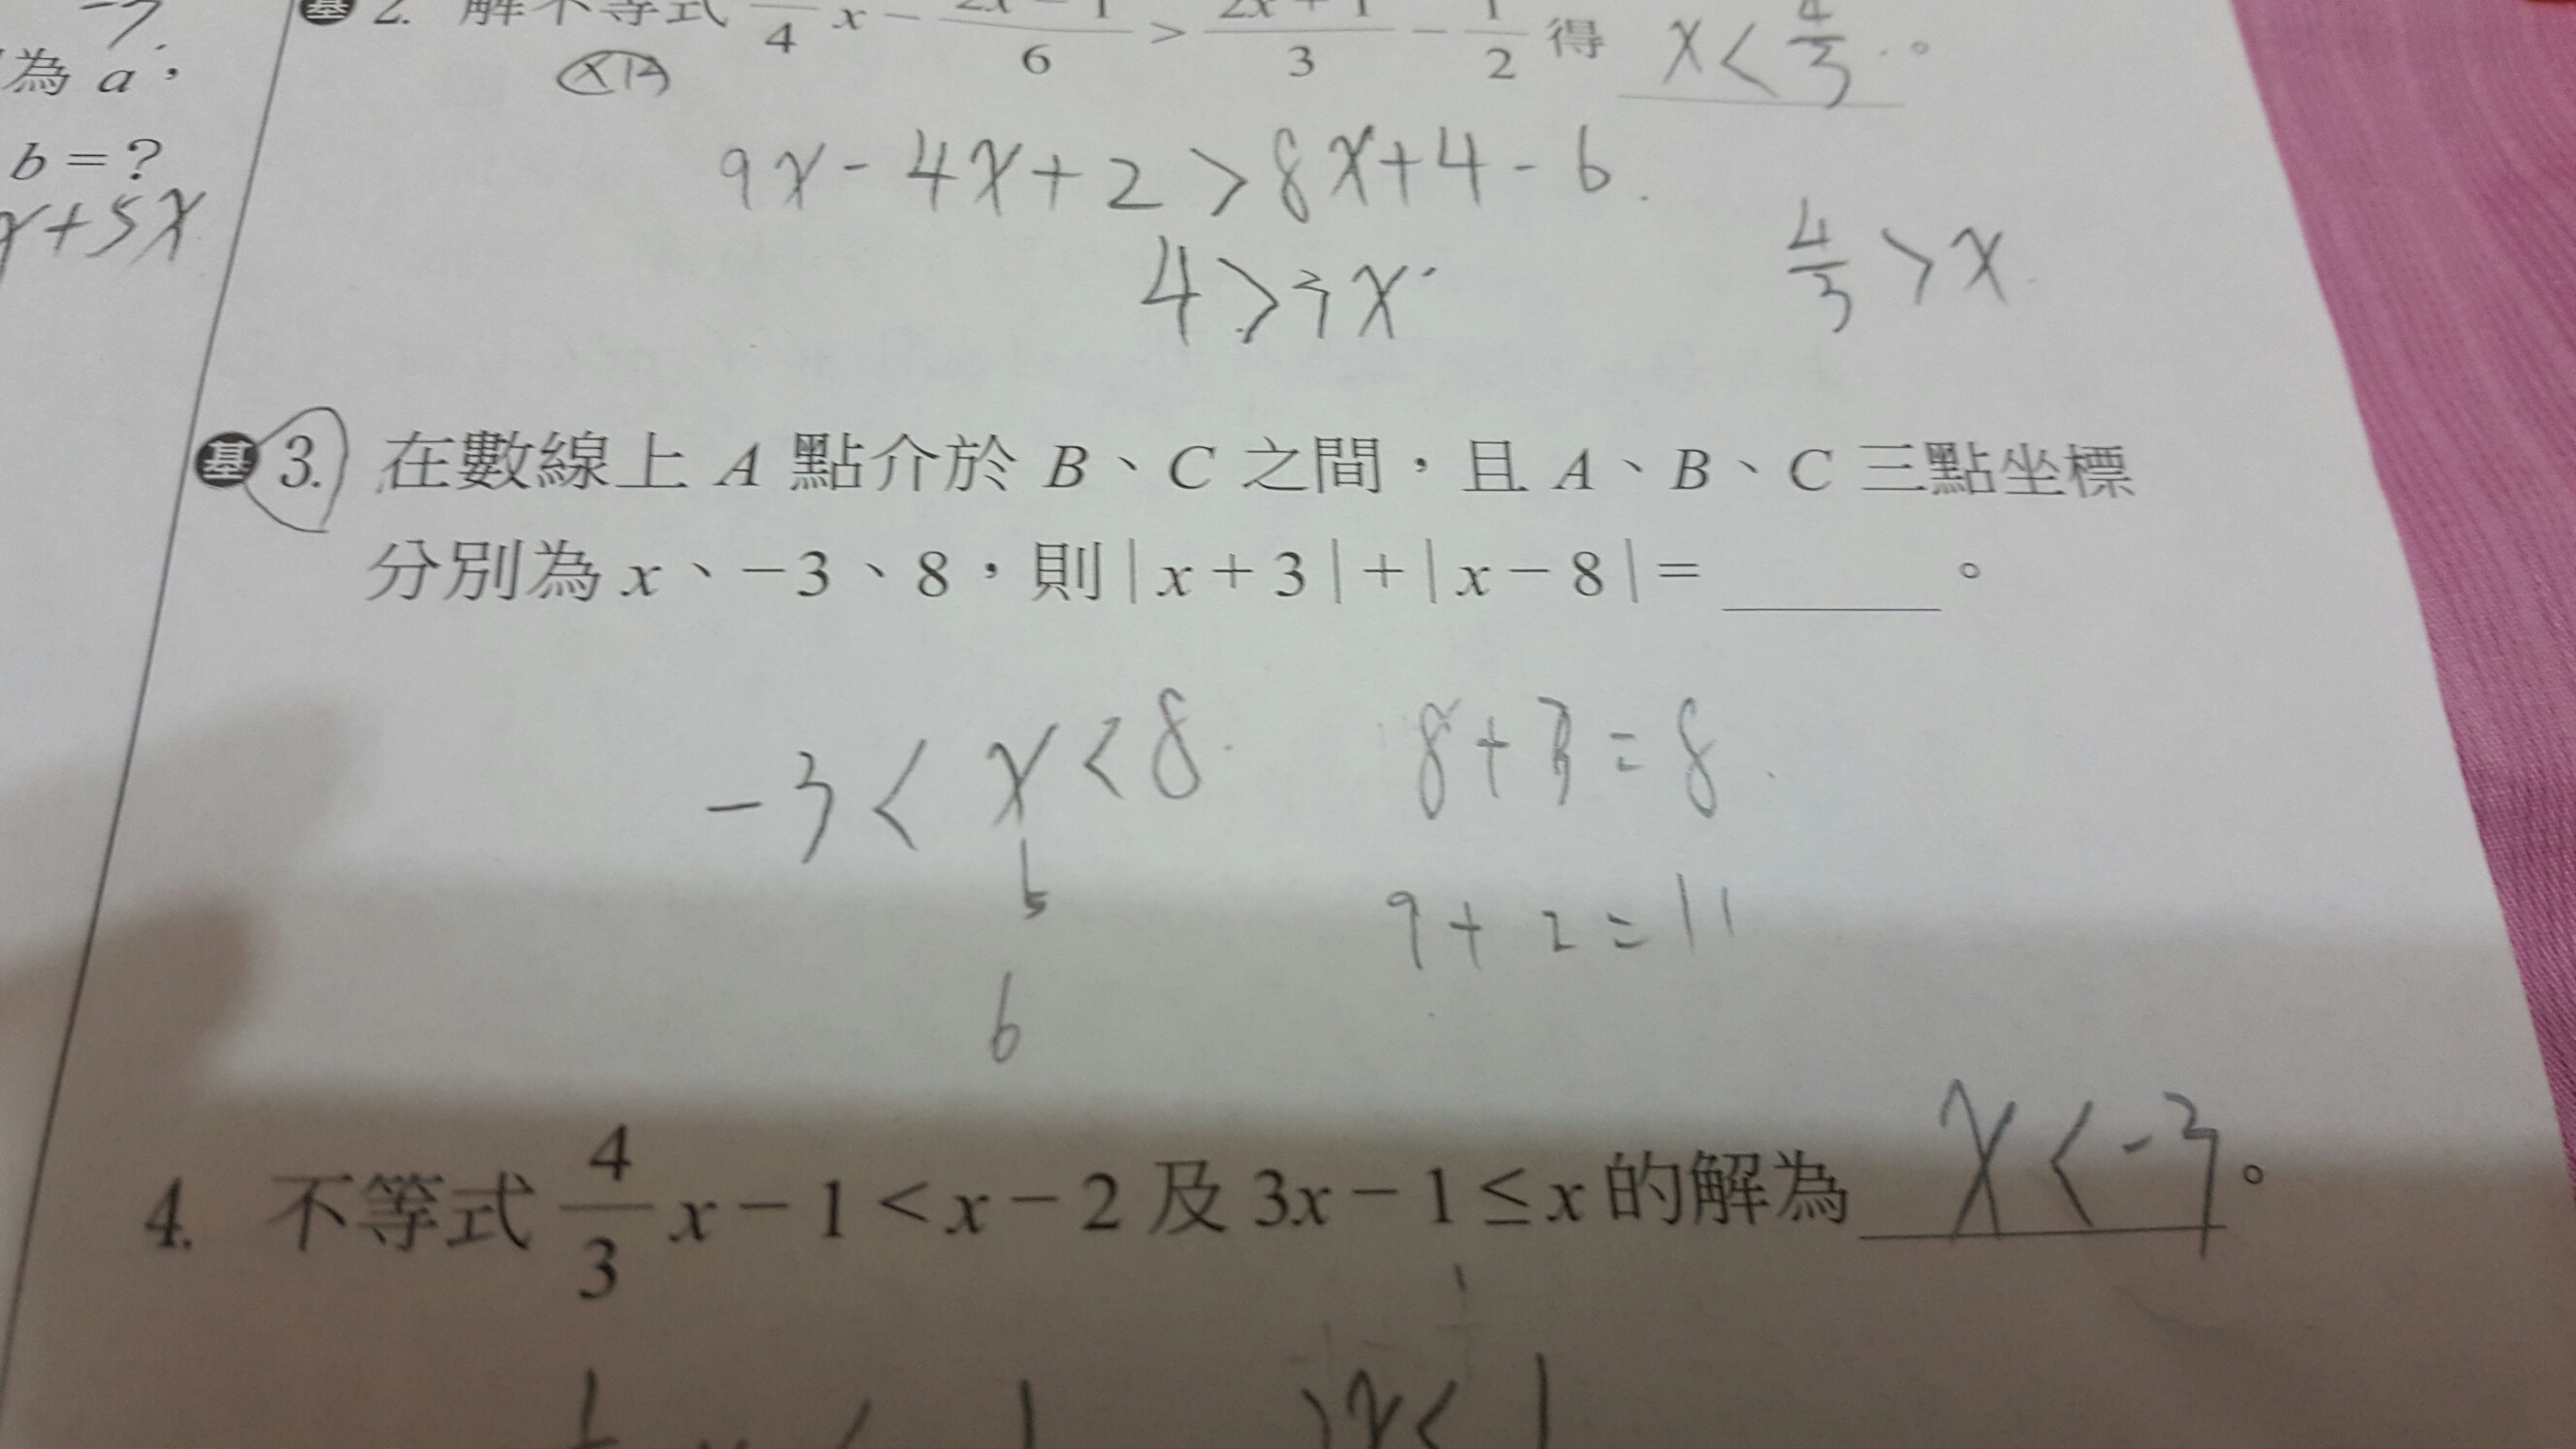 -7.
為 a，
b＝？
x+5x
基 2. 解不等式 /4 x－ 2x－1/6 ＞ 2x＋1/3 － 1/2 得 x<4/3.。
×12
9x-4x+2>8x+4-6.
4>3x.
4/3>x.
基 3. 在數線上 A 點介於 B、C 之間，且 A、B、C 三點坐標
分別為 x、－3、8，則｜x＋3｜＋｜x－8｜＝＿＿＿。
-3<x<8. 8+3=8.
5
9+2=11
6
4. 不等式 4/3 x－1＜x－2 及 3x－1≤x 的解為 x<-3。